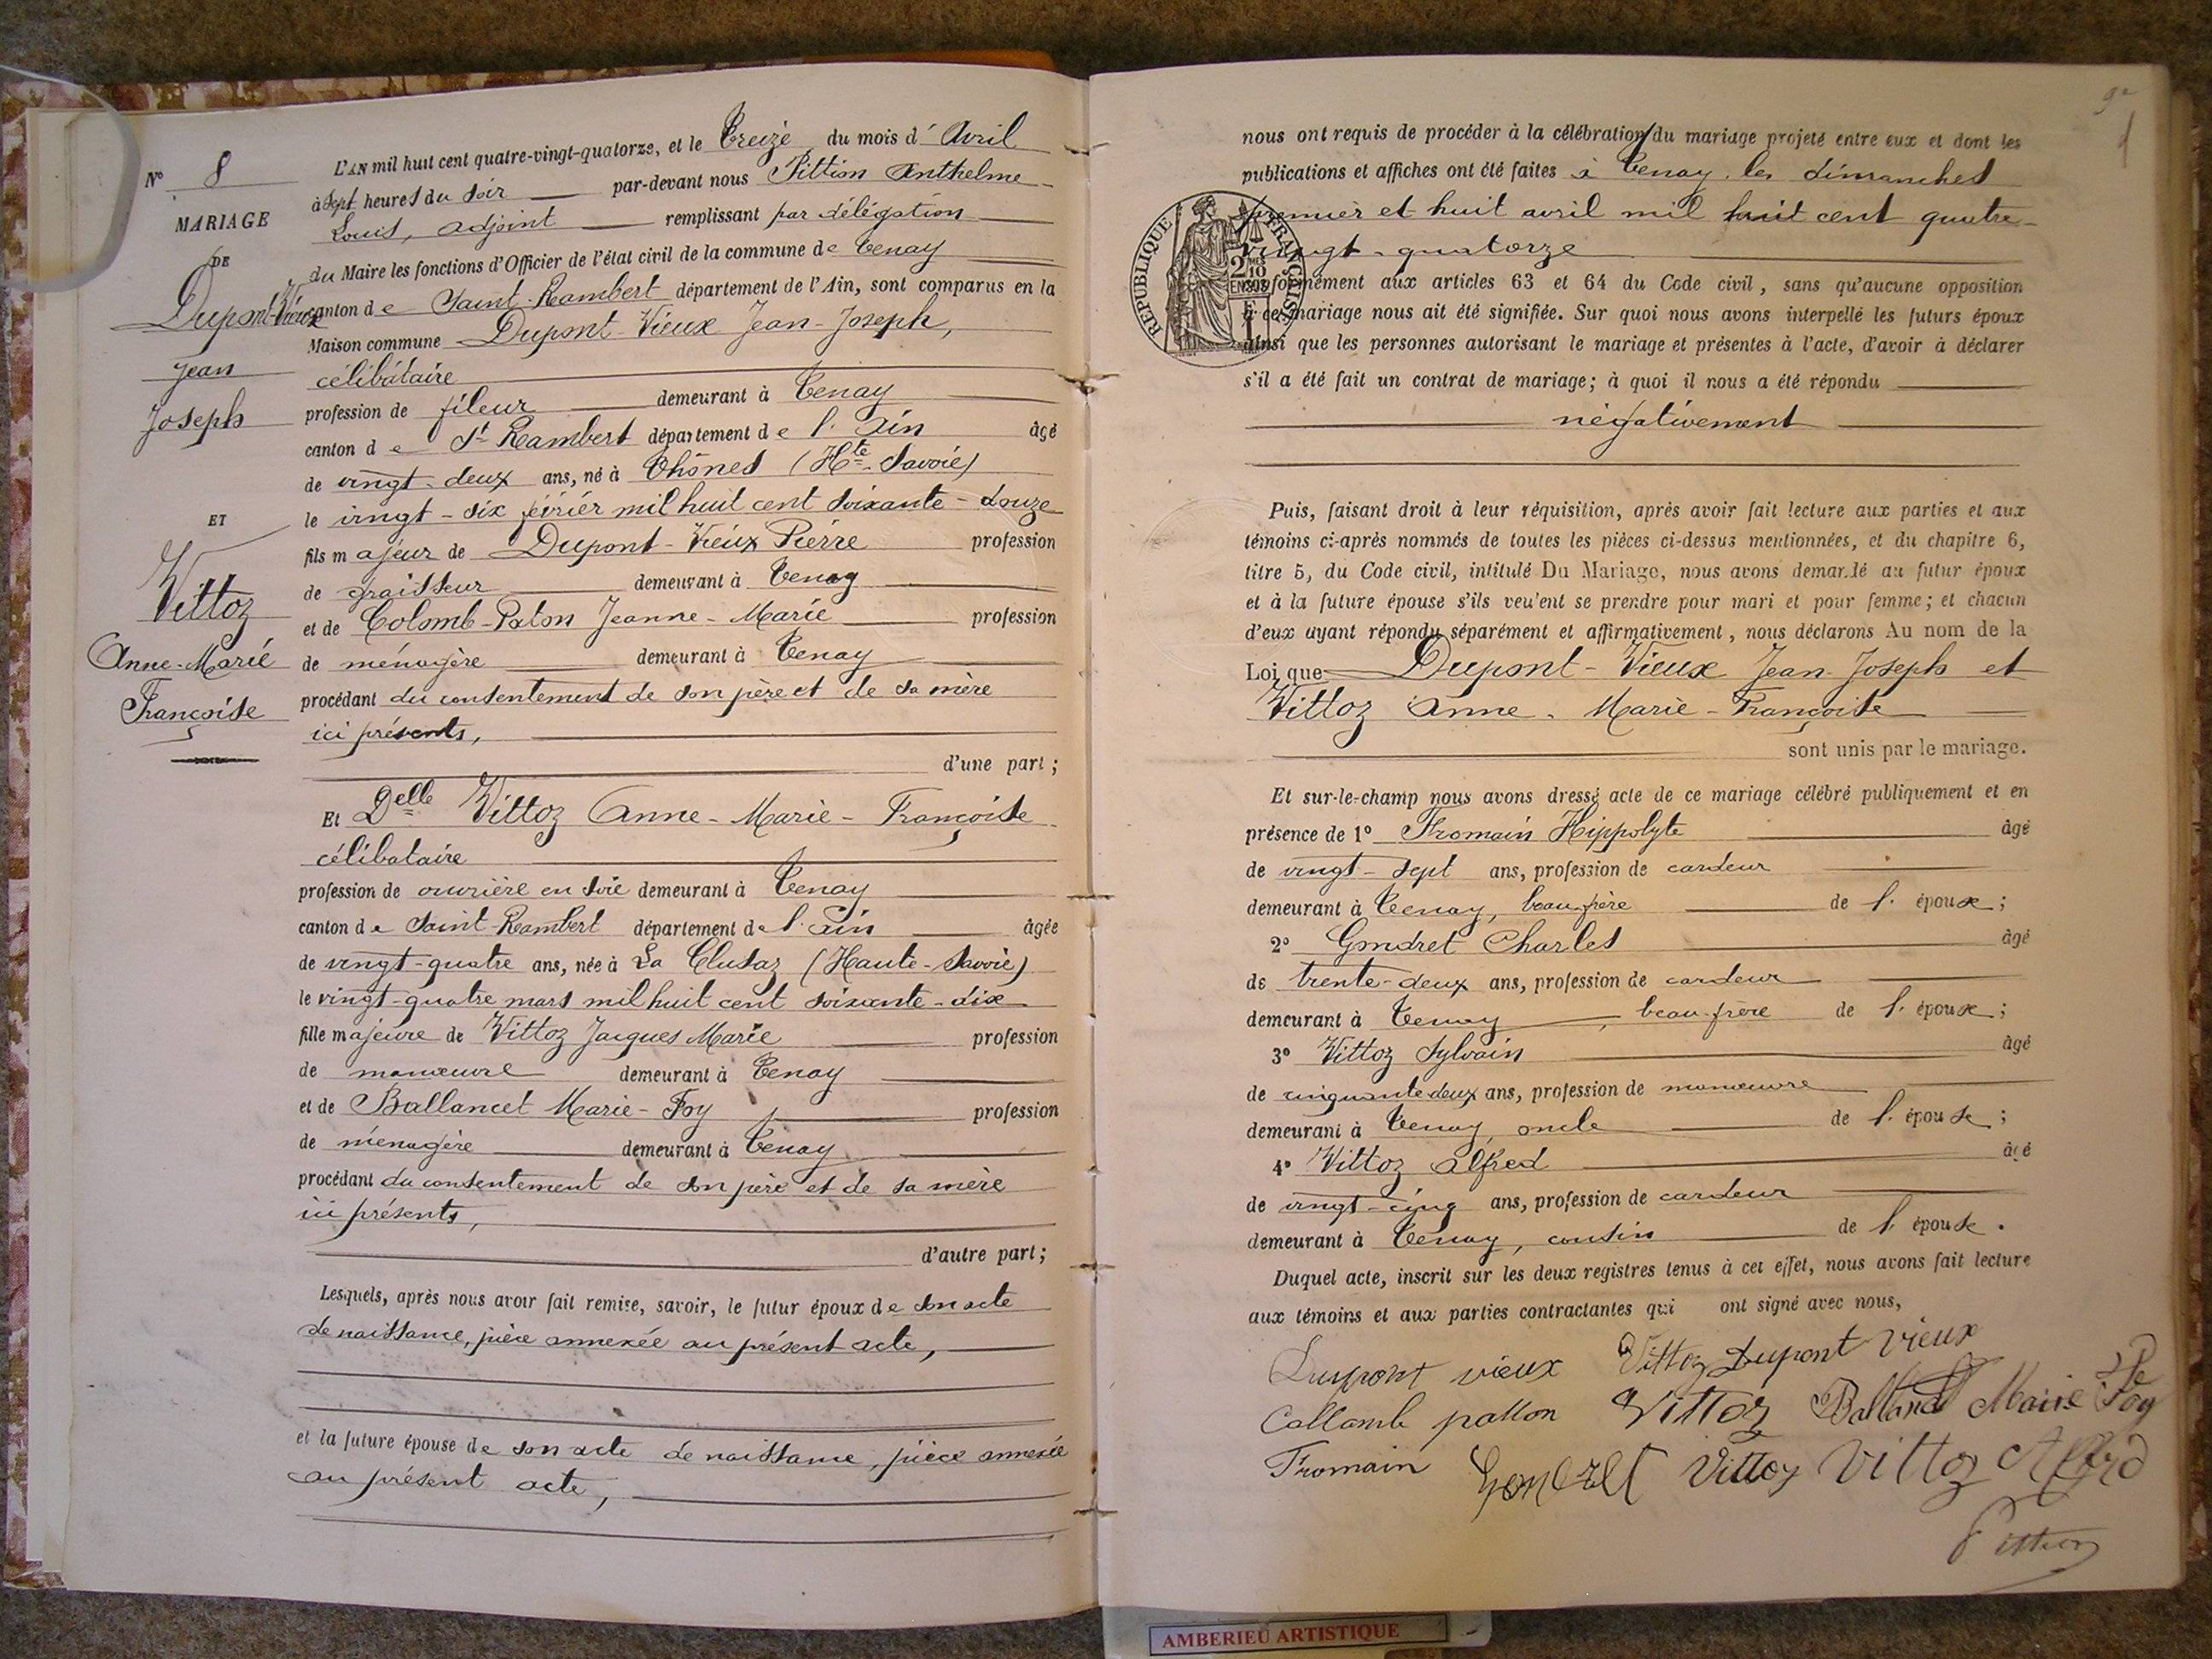 N° 8
MARIAGE
DE
Dupont-Vieux
Jean
Joseph
ET
Vittoz
Anne-Marie
Françoise
L'AN mil huit cent quatre-vingt-quatorze, et le Treize du mois d' Avril
à sept heures du soir par-devant nous Pittion Anthelme
Louis, adjoint remplissant par délégation
du Maire les fonctions d'Officier de l'état civil de la commune de Tenay
canton de Saint-Rambert département de l'Ain, sont comparus en la
Maison commune Dupont-Vieux Jean-Joseph,
célibataire
profession de fileur demeurant à Tenay
canton de St Rambert département de l'Ain âgé
de vingt-deux ans, né à Thônes (Hte-Savoie)
le vingt-six février mil huit cent soixante-douze
fils majeur de Dupont-Vieux Pierre profession
de graisseur demeurant à Tenay
et de Colomb-Paton Jeanne-Marie profession
de ménagère demeurant à Tenay
procédant du consentement de son père et de sa mère
ici présents,
d'une part;
Et Delle Vittoz Anne-Marie-Françoise
célibataire
profession de ouvrière en soie demeurant à Tenay
canton de Saint-Rambert département de l'Ain âgée
de vingt-quatre ans, née à La Clusaz (Haute-Savoie)
le vingt-quatre mars mil huit cent soixante-dix
fille majeure de Vittoz Jacques Marie profession
de manœuvre demeurant à Tenay
et de Ballancet Marie-Foy profession
de ménagère demeurant à Tenay
procédant du consentement de son père et de sa mère
ici présents,
d'autre part;
Lesquels, après nous avoir fait remise, savoir, le futur époux de son acte
de naissance, pièce annexée au présent acte,
et la future épouse de son acte de naissance, pièce annexée
au présent acte,
nous ont requis de procéder à la célébration du mariage projeté entre eux et dont les
publications et affiches ont été faites à Tenay, les dimanches
premier et huit avril mil huit cent quatre-
vingt-quatorze
RÉPUBLIQUE FRANÇAISE
conformément aux articles 63 et 64 du Code civil, sans qu'aucune opposition
à ce mariage nous ait été signifiée. Sur quoi nous avons interpellé les futurs époux
ainsi que les personnes autorisant le mariage et présentes à l'acte, d'avoir à déclarer
s'il a été fait un contrat de mariage; à quoi il nous a été répondu
négativement
Puis, faisant droit à leur réquisition, après avoir fait lecture aux parties et aux
témoins ci-après nommés de toutes les pièces ci-dessus mentionnées, et du chapitre 6,
titre 5, du Code civil, intitulé Du Mariage, nous avons demandé au futur époux
et à la future épouse s'ils veulent se prendre pour mari et pour femme; et chacun
d'eux ayant répondu séparément et affirmativement, nous déclarons Au nom de la
Loi que Dupont-Vieux Jean-Joseph et
Vittoz Anne-Marie-Françoise
sont unis par le mariage.
Et sur-le-champ nous avons dressé acte de ce mariage célébré publiquement et en
présence de 1° Fromain Hippolyte âgé
de vingt-sept ans, profession de cardeur
demeurant à Tenay, beau-frère de l'épouse;
2° Gondret Charles âgé
de trente-deux ans, profession de cardeur
demeurant à Tenay, beau-frère de l'épouse;
3° Vittoz Sylvain âgé
de cinquante deux ans, profession de manœuvre
demeurant à Tenay, oncle de l'épouse;
4° Vittoz Alfred âgé
de vingt-cinq ans, profession de cardeur
demeurant à Tenay, cousin de l'épouse.
Duquel acte, inscrit sur les deux registres tenus à cet effet, nous avons fait lecture
aux témoins et aux parties contractantes qui ont signé avec nous,
Dupont vieux Vittoz Dupont vieux
Collomb patton Vittoz Marie Foy
Fromain Vittoz Vittoz Alfred
Pittion
AMBERIEU ARTISTIQUE